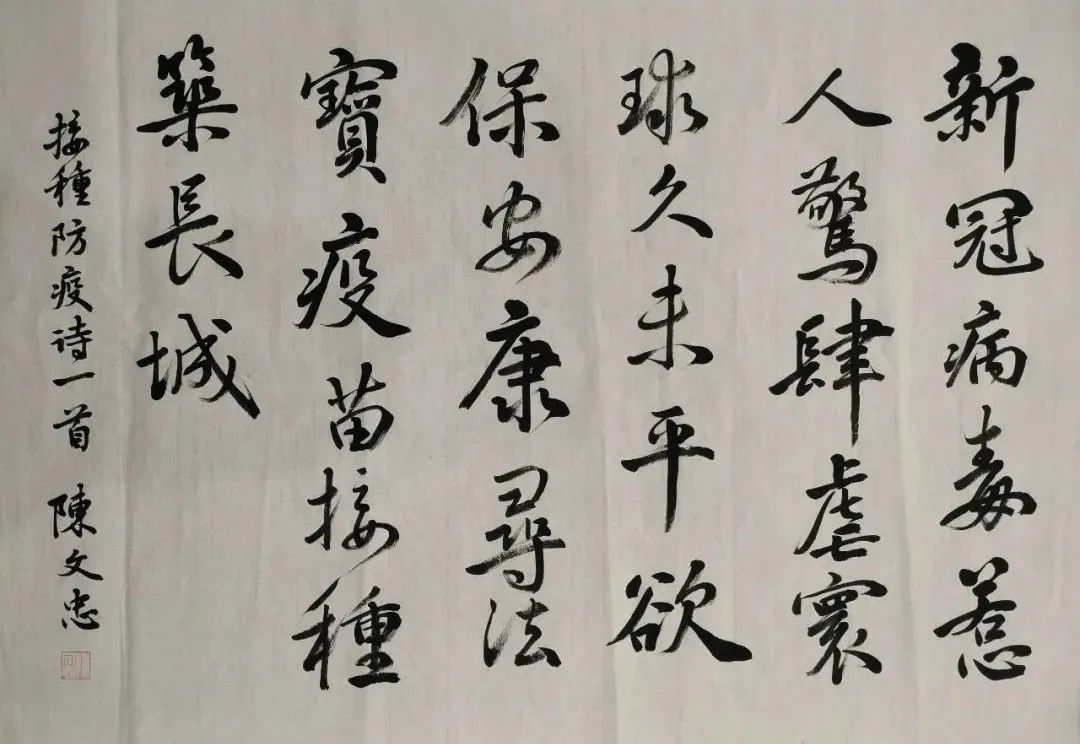 新冠病毒惹
人驚肆虐寰
球久未平欲
保安康尋法
寶疫苗接種
築長城
接種防疫诗一首 陳文忠